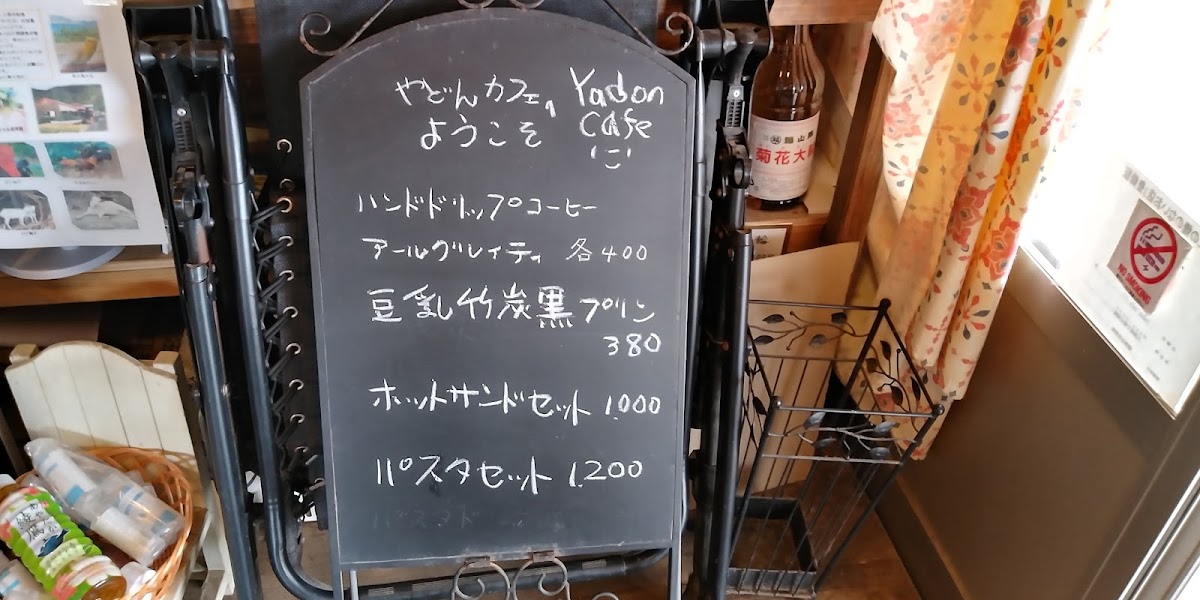 やどんカフェ、
ようこそ
Yadon
Cafe
ハンドドリップコーヒー
アールグレイティ 各400
豆乳竹炭黒プリン
380
ホットサンドセット 1.000
パスタセット 1.200
菊花大
NO SMOKING